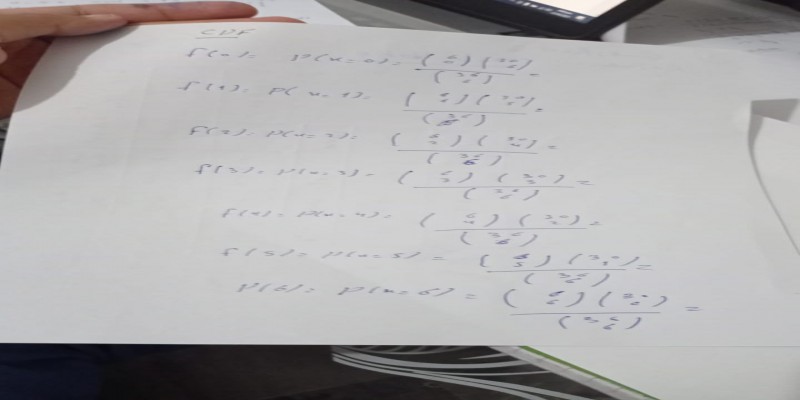 CDF
f(0) = P(x=0) = (6 0)(30 6) / (36 6) =
f(1) = P(x=1) = (6 1)(30 5) / (36 6) =
f(2) = P(x=2) = (6 2)(30 4) / (36 6) =
f(3) = P(x=3) = (6 3)(30 3) / (36 6) =
f(4) = P(x=4) = (6 4)(30 2) / (36 6) =
f(5) = P(x=5) = (6 5)(30 1) / (36 6) =
P(6) = P(x=6) = (6 6)(30 0) / (36 6) =